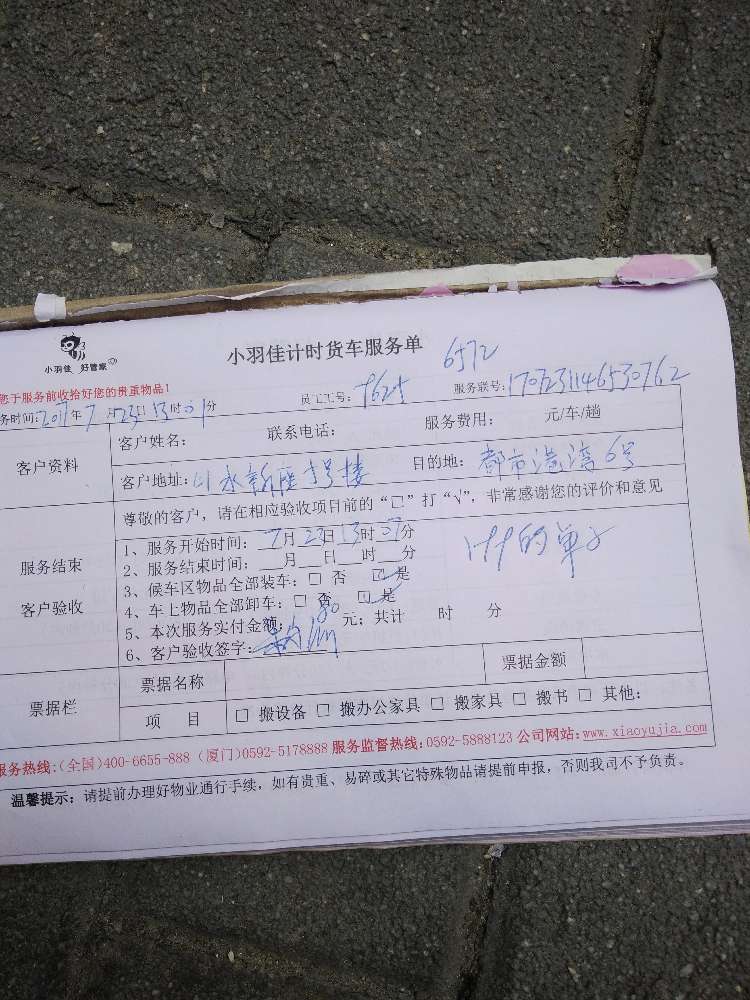 小羽佳 好管家
小羽佳计时货车服务单
6572
您于服务前收拾好您的贵重物品!
务时间:2017年7月23日13时01分
员工工号: 9625
服务联号:1707231146530762
客户资料
客户姓名: 联系电话: 服务费用: 元/车/趟
客户地址: 永新 号楼 目的地: 都市港湾6号
尊敬的客户,请在相应验收项目前的“□”打“√”,非常感谢您的评价和意见
服务结束
客户验收
1、服务开始时间: 7月23日13时01分
2、服务结束时间: 月 日 时 分
3、候车区物品全部装车: □ 否 □ 是
4、车上物品全部卸车: □ 否 □ 是
5、本次服务实付金额: 80 元; 共计 时 分
6、客户验收签字:
的单子
票据栏
票据名称 票据金额
项 目 □ 搬设备 □ 搬办公家具 □ 搬家具 □ 搬书 □ 其他:
服务热线:(全国)400-6655-888 (厦门)0592-5178888 服务监督热线:0592-5888123 公司网站:www.xiaoyujia.com
温馨提示: 请提前办理好物业通行手续,如有贵重、易碎或其它特殊物品请提前申报,否则我司不予负责。